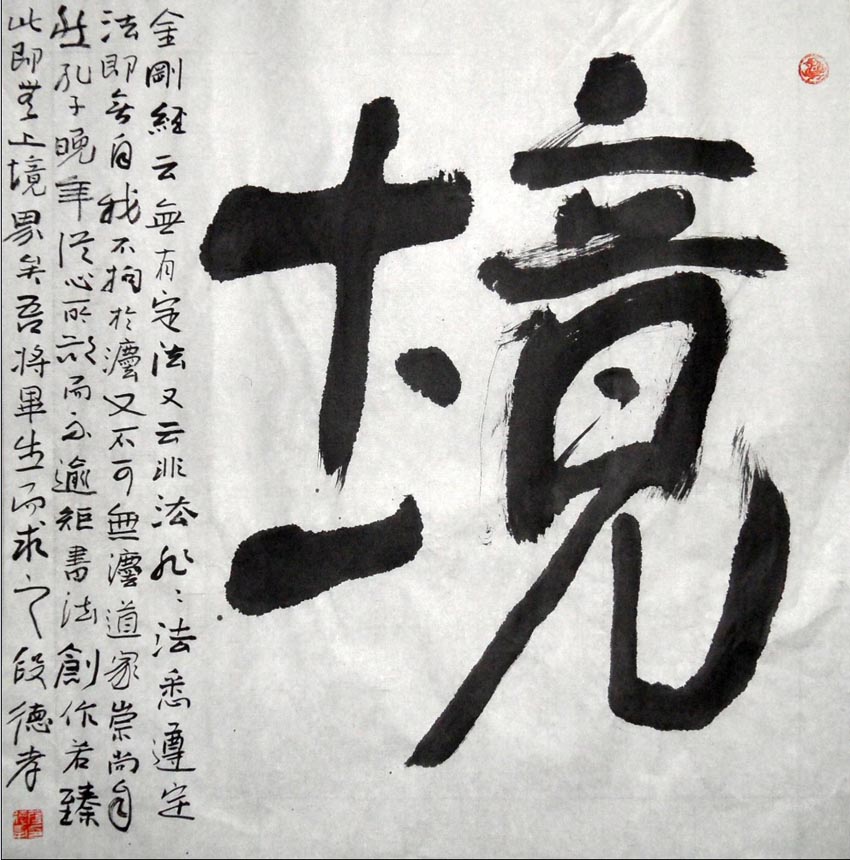 境
金剛經云無有定法又云非法非〻法悉遵定
法即無自我不拘於灋又不可無灋道家崇尚自
然孔子晚年從心所欲而不逾矩書法創作若臻
此即無上境界矣吾將畢生而求之段德孝